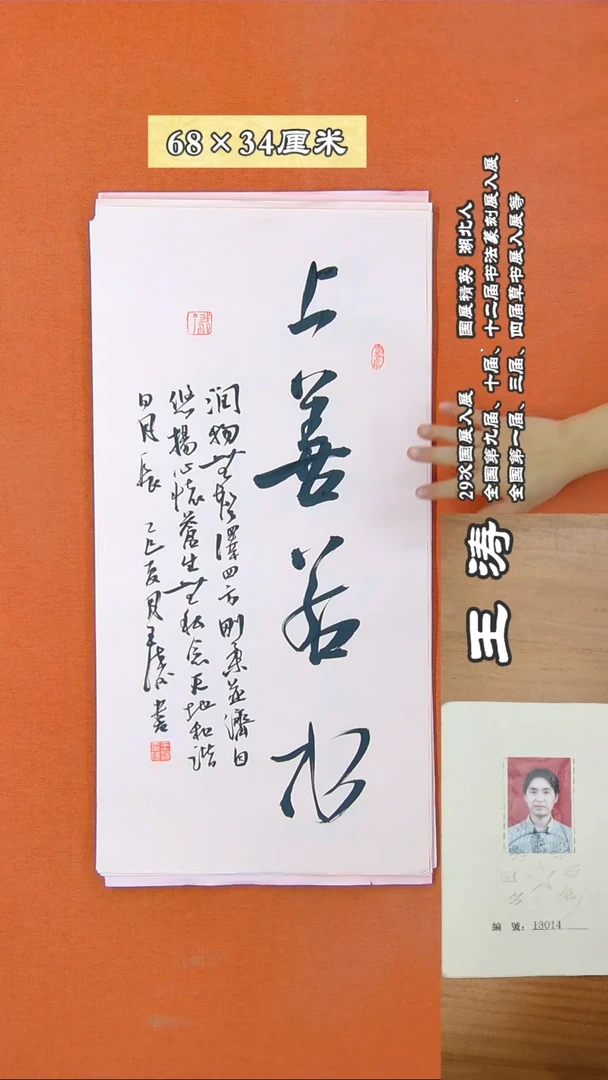 68×34厘米
上善若水
润物无声澤四方刚柔并濟日
悠揚心懷蒼生无私念天地和谐
日月長 乙巳夏月王涛書
王涛
29次国展入展 国展精英 湖北人
全国第九届、十届、十二届书法篆刻展入展
全国第一届、三届、四届草书展入展等
編號：13014